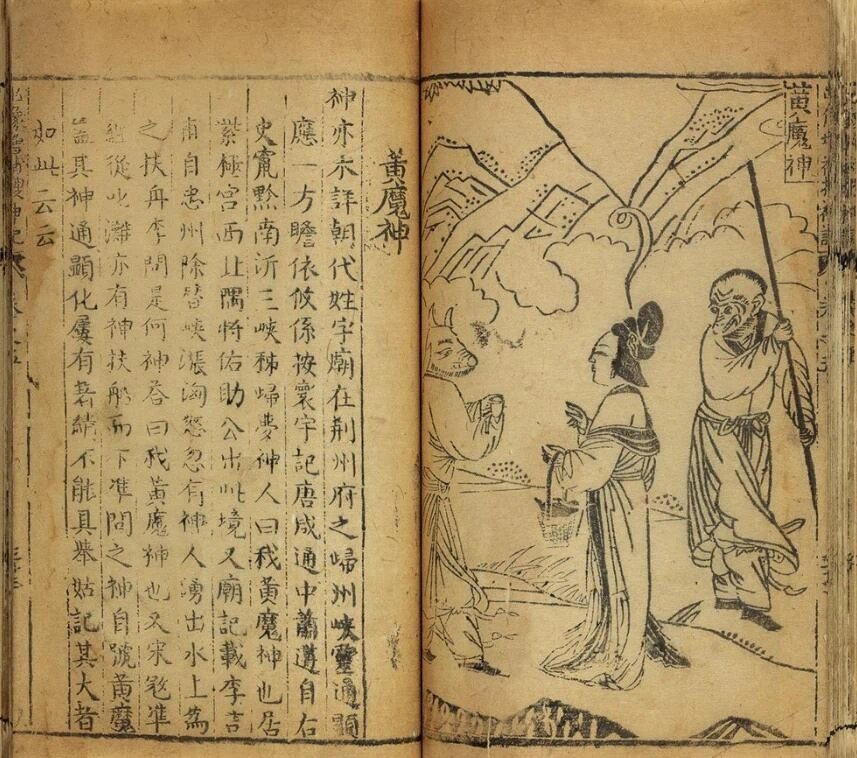 黃魔神
黃魔神
神亦不詳朝代姓字廟在荆州府之歸州峽靈通顯
應一方瞻依攸係按寰宇記唐咸通中蕭遘自右
史竄黔南沂三峽秭歸夢神人曰我黃魔神也居
紫極宮西北隅將佑助公出此境又廟記載李吉
甫自忠州除替峽漲洶怒忽有神人湧出水上爲
之扶舟李問是何神荅曰我黃魔神也又宋寇准
經從叱灘亦有神扶船而下准問之神自號黃魔
盖其神通顯化屢有著績不能具舉姑記其大者
如此云云